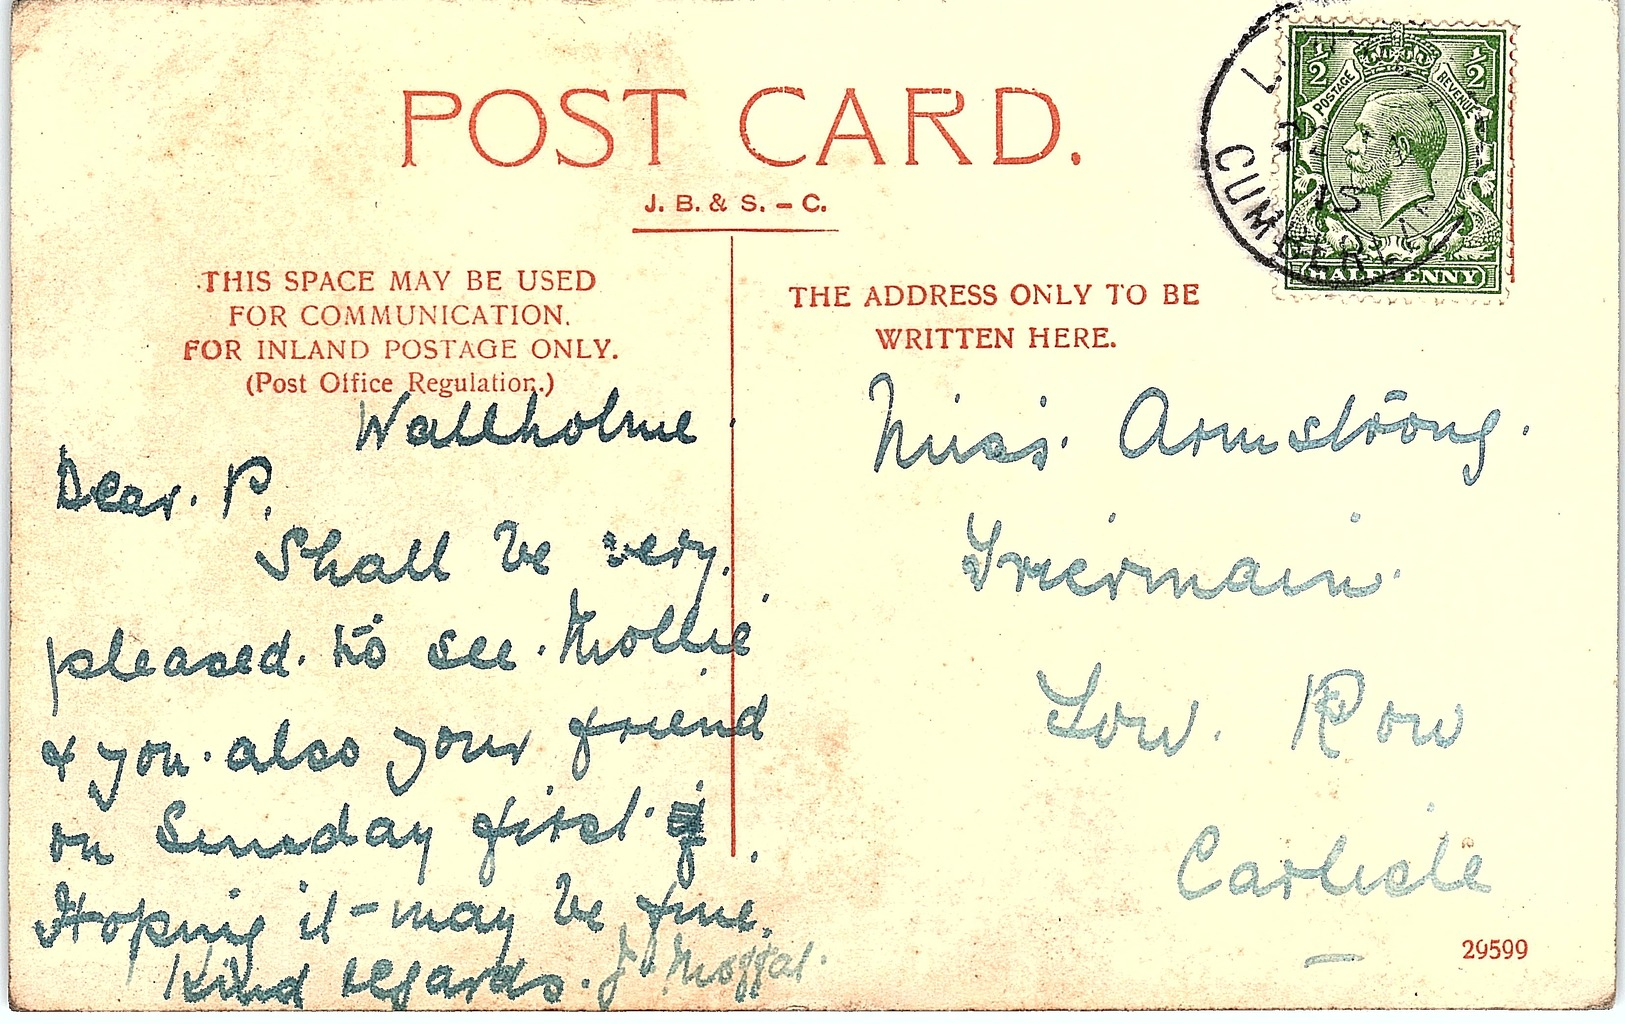 POST CARD.
J. B. & S. – C.
THIS SPACE MAY BE USED
FOR COMMUNICATION.
FOR INLAND POSTAGE ONLY.
(Post Office Regulation.)
Wallholme.
Dear. P.
Shall be very.
pleased. to see. Mollie
& you. also your friend
on Sunday first.
Hoping it - may be fine.
Kind regards. J. Moffat.
THE ADDRESS ONLY TO BE
WRITTEN HERE.
Miss. Armstrong.
Triermain.
Low. Row
Carlisle
29599
1/2 1/2
POSTAGE REVENUE
HALFPENNY
CUMBERLAND
15